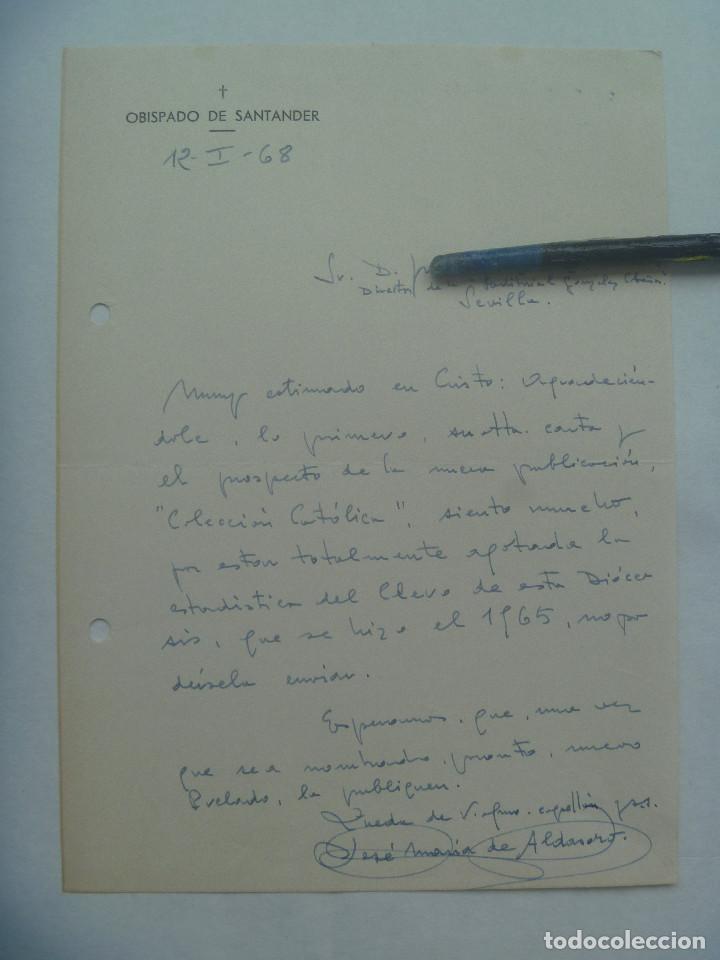 †
OBISPADO DE SANTANDER
12-I-68
Sr. D.
Director de la Editorial
Sevilla.
Muy estimado en Cristo: Agradecién-
dole, lo primero, su atta. carta y
el prospecto de la nueva publicación,
"Colección Católica", siento mucho,
por estar totalmente agotada la
estadística del Clero de esta Dióce
sis, que se hizo el 1965, no po
dérsela enviar.
Esperamos que, una vez
que sea nombrado, pronto, nuevo
Prelado, la publiquen.
Queda de V. afmo. capellán
José María de Aldasoro.
todocoleccion